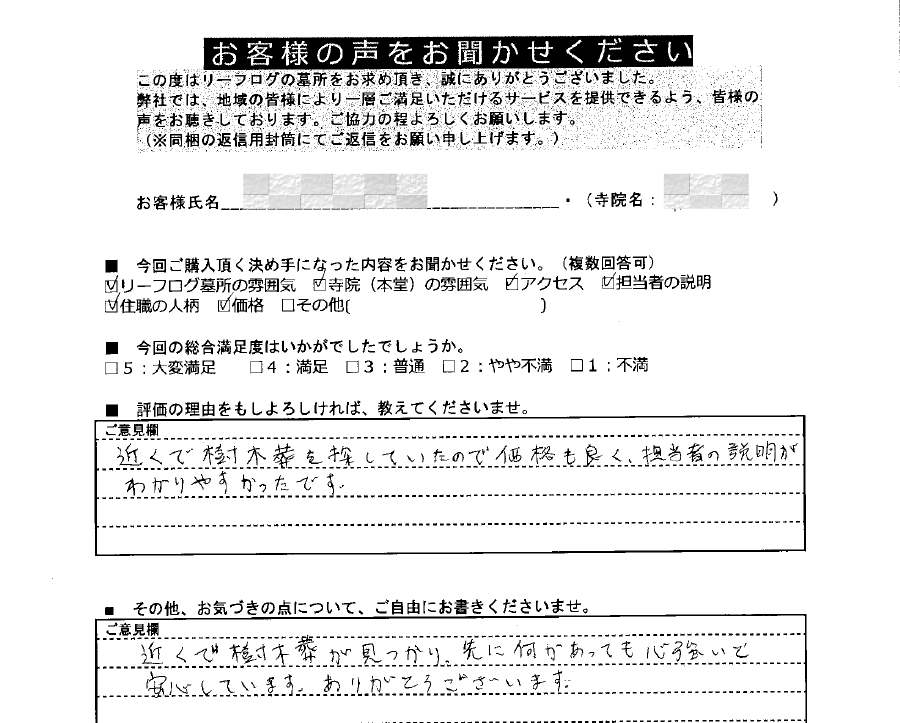 お客様の声をお聞かせください
この度はリーフログの墓所をお求め頂き、誠にありがとうございました。
弊社では、地域の皆様により一層ご満足いただけるサービスを提供できるよう、皆様の
声をお聴きしております。ご協力の程よろしくお願いします。
（※同梱の返信用封筒にてご返信をお願い申し上げます。）
お客様氏名　・（寺院名：　）
■　今回ご購入頂く決め手になった内容をお聞かせください。（複数回答可）
☑リーフログ墓所の雰囲気　☑寺院（本堂）の雰囲気　☑アクセス　☑担当者の説明
☑住職の人柄　☑価格　□その他(　)
■　今回の総合満足度はいかがでしたでしょうか。
□５：大変満足　□４：満足　□３：普通　□２：やや不満　□１：不満
■　評価の理由をもしよろしければ、教えてくださいませ。
ご意見欄
近くで樹木葬を探していたので価格も良く、担当者の説明が
わかりやすかったです。
■　その他、お気づきの点について、ご自由にお書きくださいませ。
ご意見欄
近くで樹木葬が見つかり、先に何かあっても心強いと
安心しています。ありがとうございます。